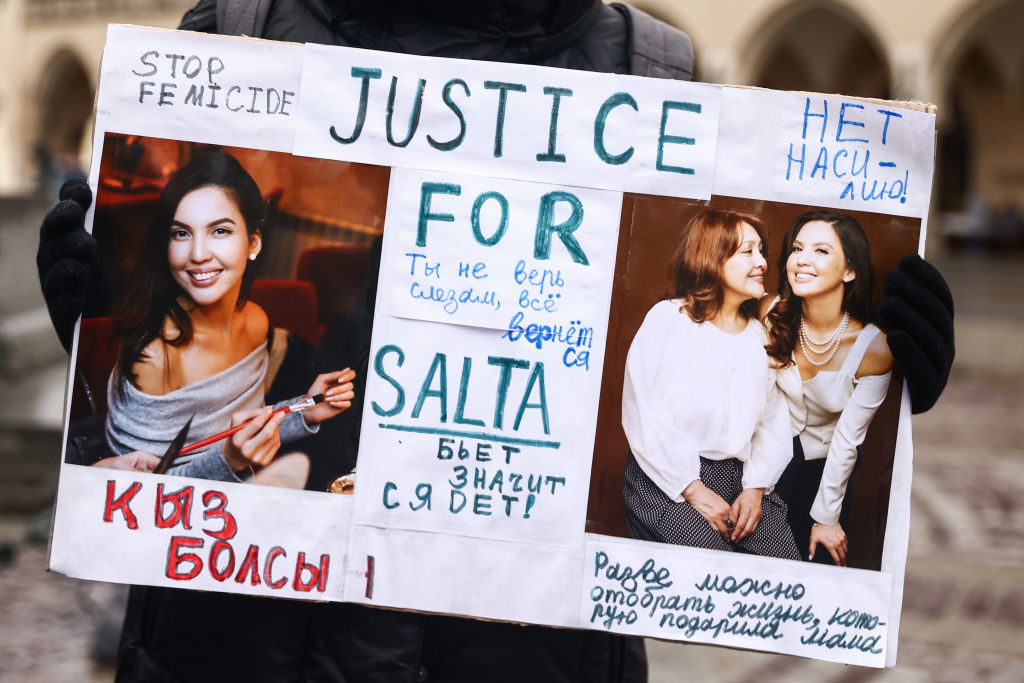 STOP
FEMICIDE
JUSTICE
НЕТ
НАСИ-
ЛИЮ!
FOR
Ты не верь
слезам, всё
вернёт
ся
SALTA
БЬЕТ
ЗНАЧИТ
СЯДЕТ!
КЫЗ
БОЛСЫН
Разве можно
отобрать жизнь, кото-
рую подарила мама